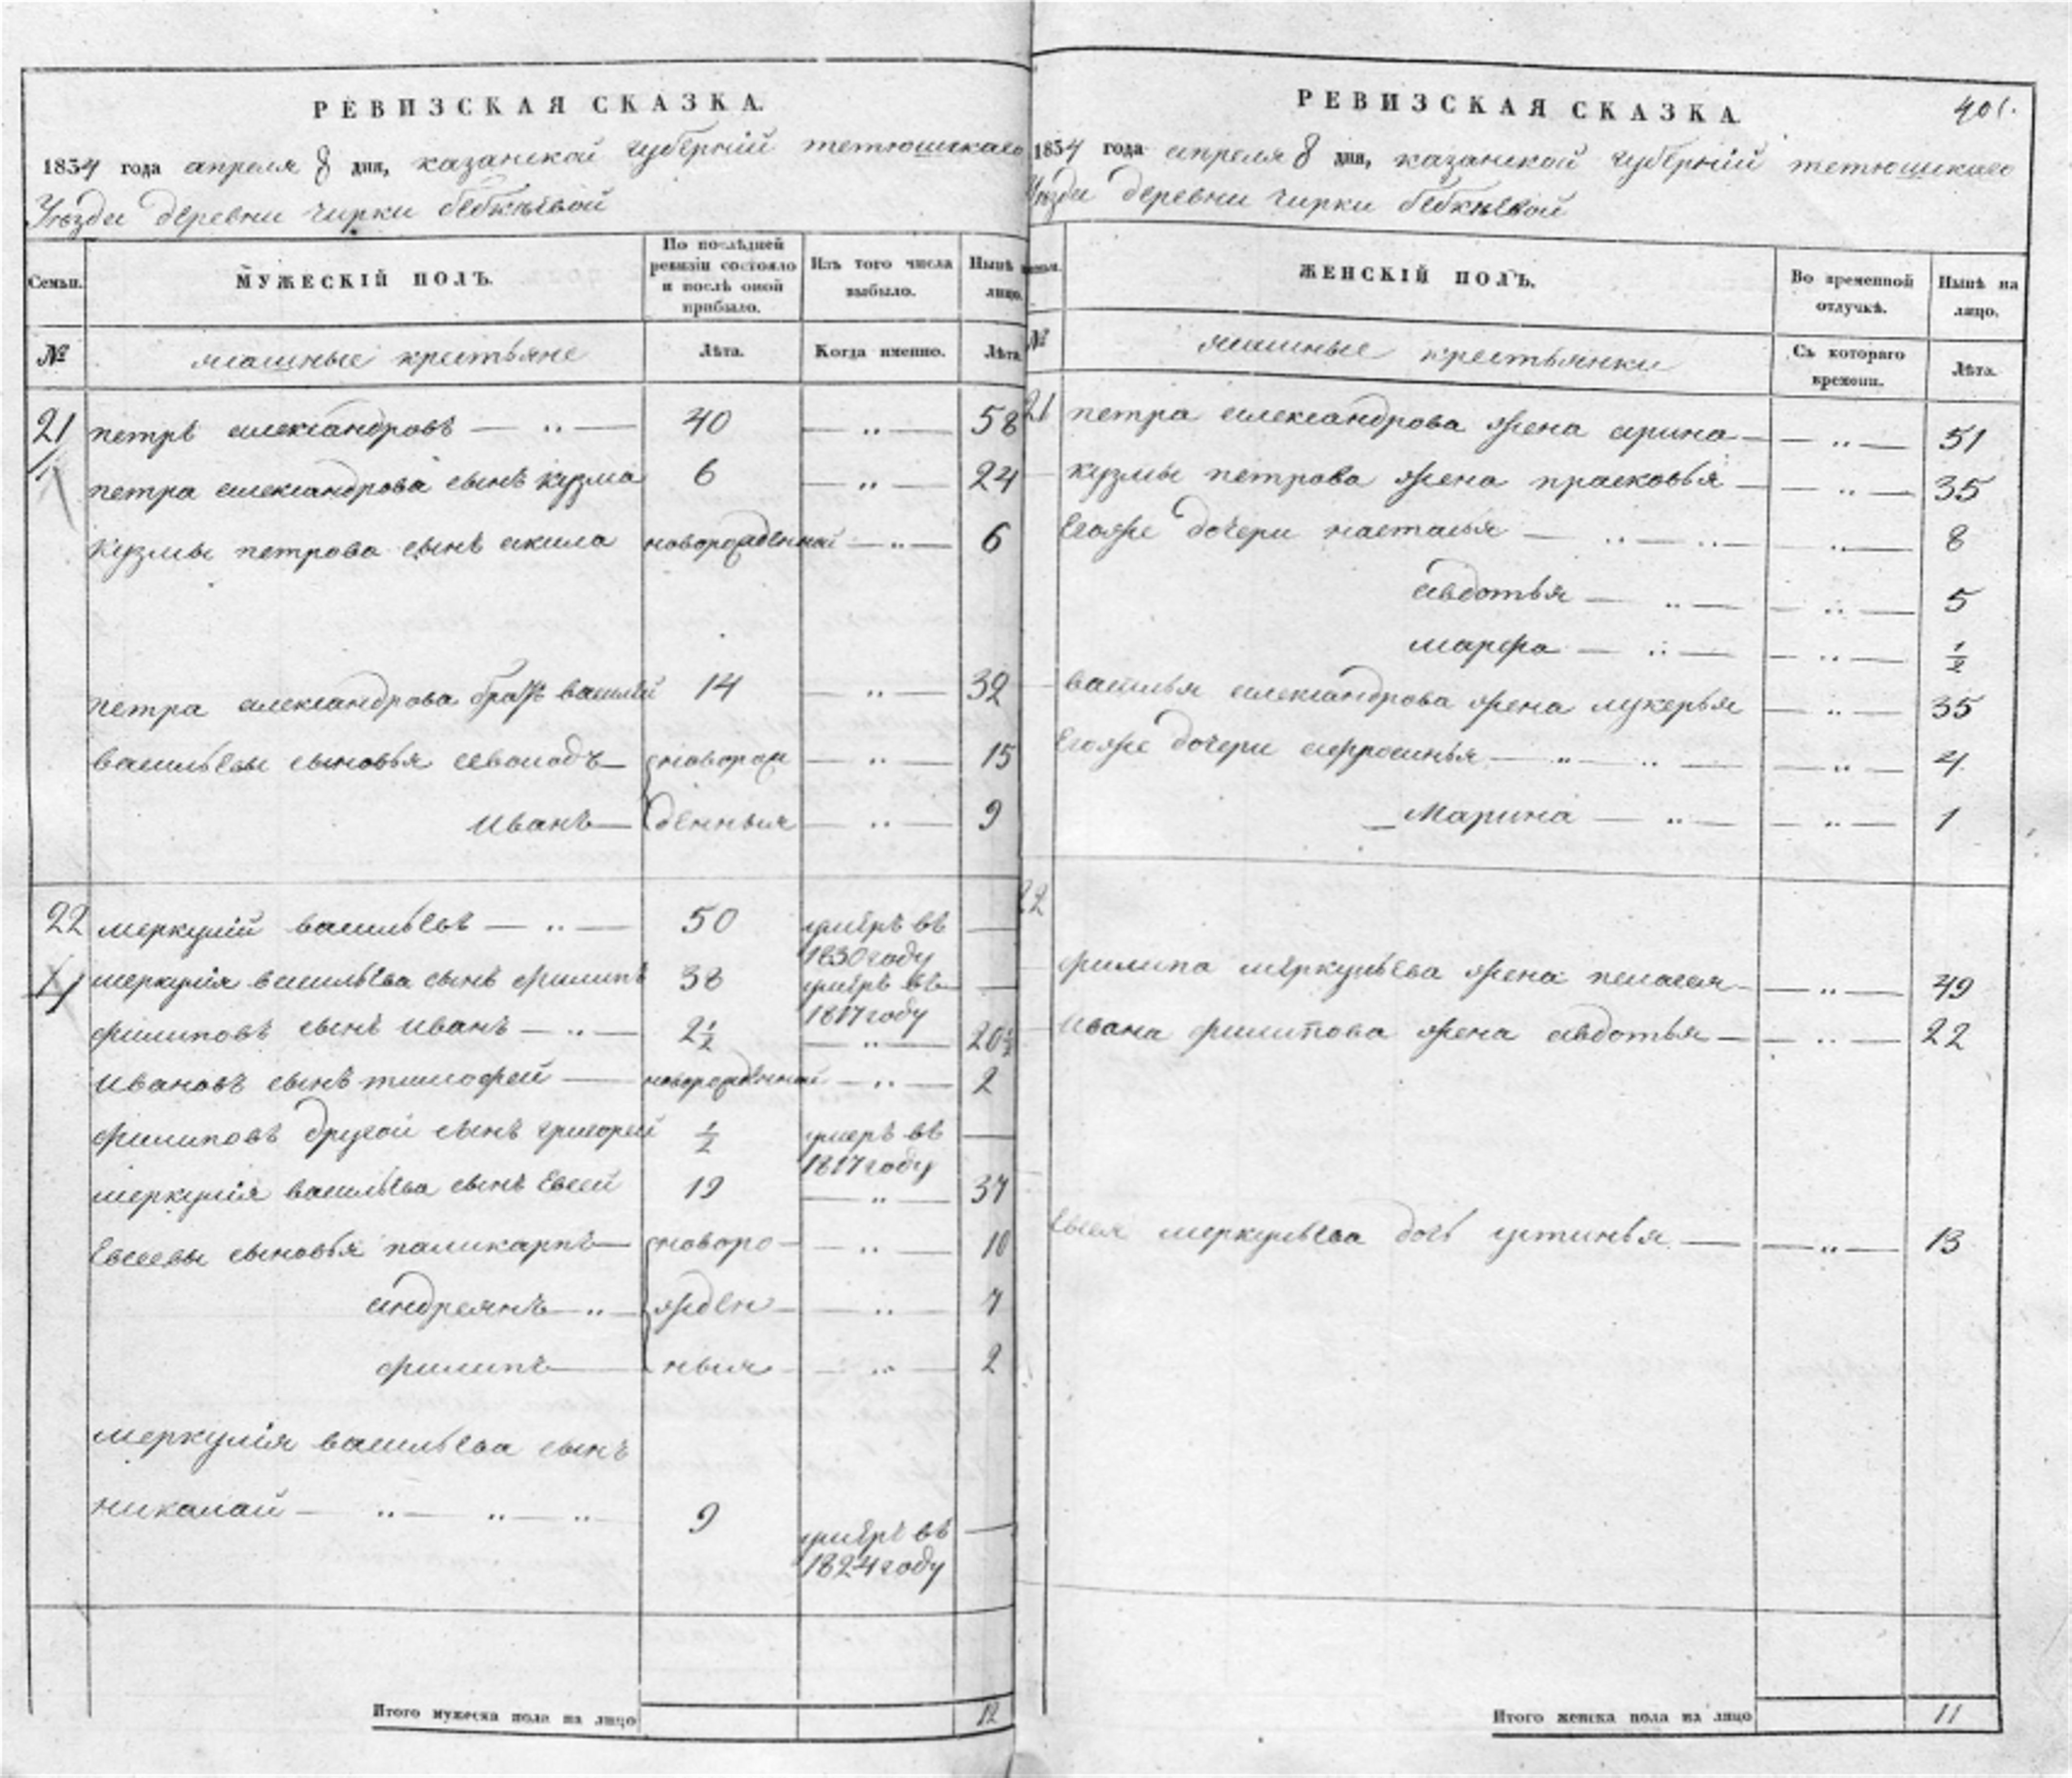 РЕВИЗСКАЯ СКАЗКА.
1834 года апреля 8 дня, казанской губерній тетюшскаго
Уѣзда деревни чирки бебкѣевой
Семьи.
МУЖЕСКІЙ ПОЛЪ.
По послѣдней ревизіи состояло и послѣ оной прибыло.
Изъ того числа выбыло.
Нынѣ лицо.
№
ясашные крестьяне
Лѣта.
Когда именно.
Лѣта.
21 петръ александровъ — „ — 40 — „ — 58
петра александрова сынъ кузма 6 — „ — 24
кузмы петрова сынъ акила новорожденный — „ — 6
петра александрова братъ василей 14 — „ — 32
васильевы сыновья севолодъ — новорож — „ — 15
иванъ — денныя — „ — 9
22 меркулій васильевъ — „ — 50 умеръ въ 1830 году —
меркулія васильева сынъ филипъ 38 умеръ въ 1817 году —
филиповъ сынъ иванъ — „ — 2½ — „ — 20½
ивановъ сынъ тимофей — новорожденный — „ — 2
филиповъ другой сынъ григорей ½ умеръ въ 1817 году —
меркулія васильева сынъ евсей 19 — „ — 37
евсеевы сыновья паликарпъ — новоро — „ — 10
андреянъ — „ — жден — „ — 7
филипъ — ныя — „ — 2
меркулія васильева сынъ
николай — „ — „ — „ 9 умеръ въ 1824 году —
Итого мужеска пола на лицо 12
РЕВИЗСКАЯ СКАЗКА.
401.
1834 года апреля 8 дня, казанской губерній тетюшскаго
Уѣзда деревни чирки бебкѣевой
ЖЕНСКІЙ ПОЛЪ.
Во временной отлучкѣ.
Нынѣ на лицо.
№
ясашные крестьянки
Съ котораго времени.
Лѣта.
21 петра александрова жена арина — — „ — 51
кузмы петрова жена прасковья — — „ — 35
Егоже дочери настасья — „ — „ — — „ — 8
авдотья — „ — — „ — 5
марфа — „ — — „ — ½
василья александрова жена лукерья — „ — 35
Егоже дочери афросинья — „ — „ — — „ — 4
Марина — „ — — „ — 1
22
филипа меркульева жена пелагея — — „ — 49
Ивана филипова жена авдотья — — „ — 22
Евсея меркульева дочь устинья — — „ — 13
Итого женска пола на лицо 11